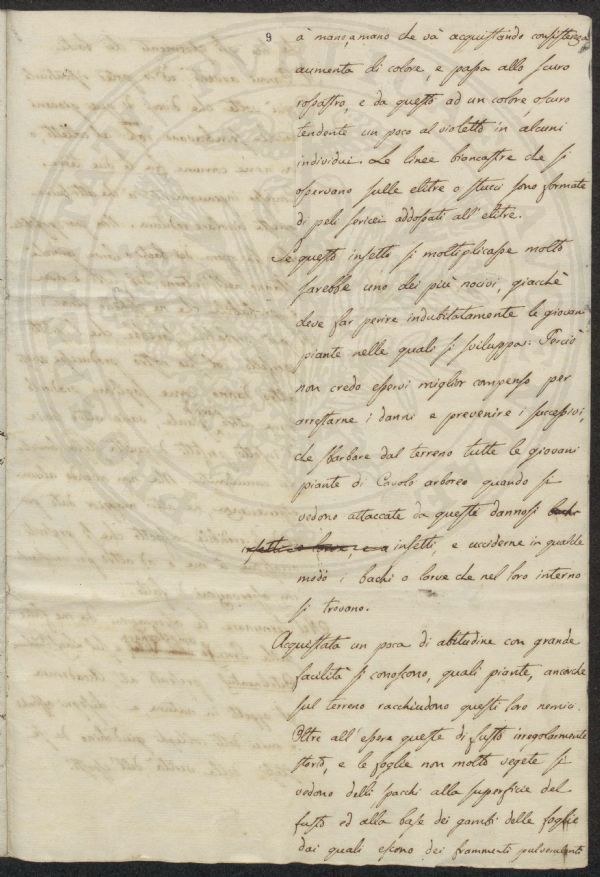 9
à mano, a mano che và acquistando consistenza
aumenta di colore, e passa allo scuro
rossastro, e da questo ad un colore oscuro
tendente un poco al violetto in alcuni
individui. Le linee biancastre che si
osservano sulle elitre o stucci sono formate
di peli sericei addossati all'elitre.
Se questo insetto si moltiplicasse molto
sarebbe uno dei più nocivi, giacchè
deve far perire indubitatamente le giovani
piante nelle quali si sviluppa: Perciò
non credo esservi miglior compenso per
arrestarne i danni e prevenire i successivi,
che sbarbare dal terreno tutte le giovani
piante di Cavolo arboreo quando si
vedono attaccate da queste dannosi
insetti, e ucciderne in qualche
modo i bachi o larve che nel loro interno
si trovano.
Acquistata un poca di abitudine con grande
facilità si conoscono, quali piante, ancorche
sul terreno racchiudono questi loro nemici.
Oltre all'essere queste di fusto irregolarmente
storto, e le foglie non molto vegete si
vedono delli spacchi alla superficie del
fusto ed alla base dei gambi delle foglie
dai quali escono dei frammenti pulverulenti